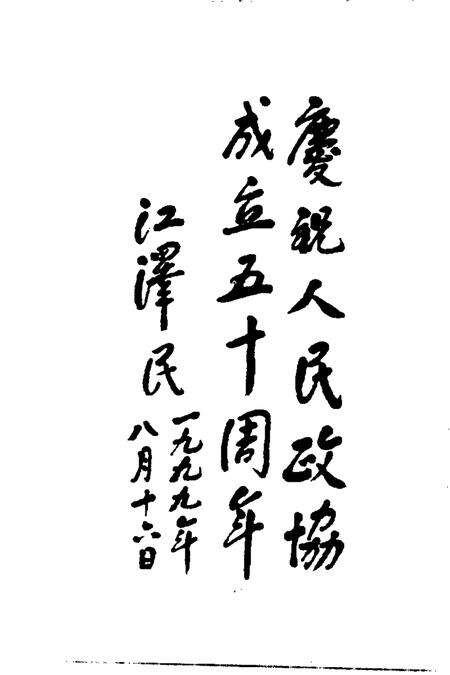 慶祝人民政協
成立五十周年
江澤民
一九九九年
八月十六日